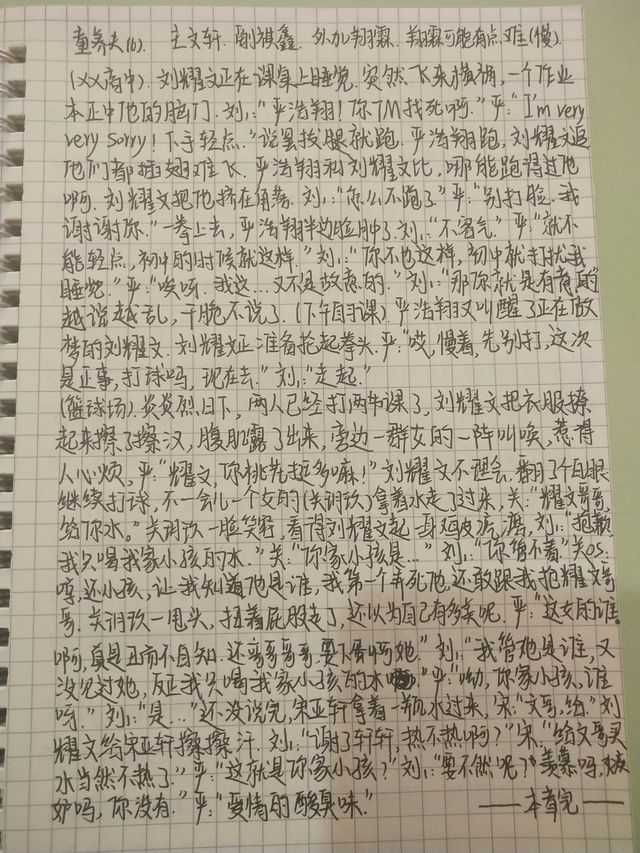 童养夫(16). 主文轩. 副祺鑫. 外加翔霖. 翔霖可能有点难(慢).
(XX高中). 刘耀文正在课桌上睡觉. 突然飞来横祸, 一个作业
本正中他的脑门. 刘:"严浩翔! 你TM找死啊." 严:"I'm very
very sorry! 下手轻点." 说罢拔腿就跑. 严浩翔跑, 刘耀文追
他们都插翅难飞. 严浩翔和刘耀文比, 哪能跑得过他
啊. 刘耀文把他挤在角落. 刘:"你怎么不跑了" 严:"别打脸. 我
谢谢你." 一拳上去, 严浩翔半边脸肿了. 刘:"不客气." 严:"就不
能轻点, 初中的时候就这样." 刘:"你不也这样, 初中就打扰我
睡觉." 严:"唉呀. 我这... 又不是故意的." 刘:"那你就是有意的
越说越乱, 干脆不说了. (下午自习课). 严浩翔又叫醒了正在做
梦的刘耀文. 刘耀文正准备抡起拳头. 严:"哎, 慢着, 先别打, 这次
是正事, 打球吗, 现在去." 刘:"走起."
(篮球场). 炎炎烈日下, 两人已经打两节课了, 刘耀文把衣服撩
起来擦了擦汉, 腹肌露了出来, 旁边一群女的一阵叫唤, 惹得
人心烦, 严:"耀文, 你桃花运多嘛!" 刘耀文不理会. 翻了个白眼
继续打球, 不一会儿一个女的(关诩玖)拿着水走了过来, 关:"耀文哥哥,
给你水." 关诩玖一脸笑容, 看得刘耀文起一身鸡皮疙瘩, 刘:"抱歉
我只喝我家小孩的水." 关:"你家小孩是..." 刘:"你管不着." 关OS:
哼, 还小孩, 让我知道他是谁, 我第一个弄死他, 还敢跟我抢耀文哥
哥. 关诩玖一甩头, 扭着屁股走了, 还以为自己有多美呢. 严:"这女的谁
啊, 真是丑而不自知. 还哥哥哥哥. 要下蛋啊她." 刘:"我管她是谁, 又
没见过她, 反正我只喝我家小孩的水" 严:"呦, 你家小孩, 谁
呀." 刘:"是..." 还没说完, 宋亚轩拿着一瓶水过来, 宋:"文哥, 给." 刘
耀文给宋亚轩擦擦汗. 刘:"谢了轩轩, 热不热啊?" 宋:"给文哥买
水当然不热了." 严:"这就是你家小孩?" 刘:"要不然呢?" 羡慕吗, 嫉
妒吗, 你没有." 严:"爱情的酸臭味."
——本章完——